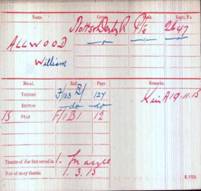 Notts & Derby R. Pte 2647
ALLWOOD
William
Medal. Roll. Page. Remarks.
VICTORY F/103 B1 127 K in A 19.11.15
BRITISH do do
15 STAR F/1 B1 12
Theatre of War first served in 1.
Date of entry therein 1.3.15